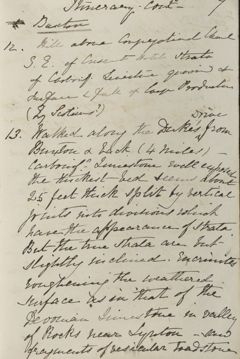 Itinerary - Cont
Buxton
12. Hill above Congregational Chapel
S.E. of Crescent Hotel Strata
of Carbonif. Limestone grooved at
surface & full of large Productus
13. Walked along the Duke's Drive from
Buxton & back (4 miles)
Carbonif. Limestone well exposed
the thickest bed seems about
25 feet thick split by vertical
joints into divisions which
have the appearance of strata.
But the true strata are but
slightly inclined. Encrinites
roughening the weathered
surface as in that of the
Devonian Limestone in valley
of Rocks near Lynton - and
fragments of vesicular toadstone